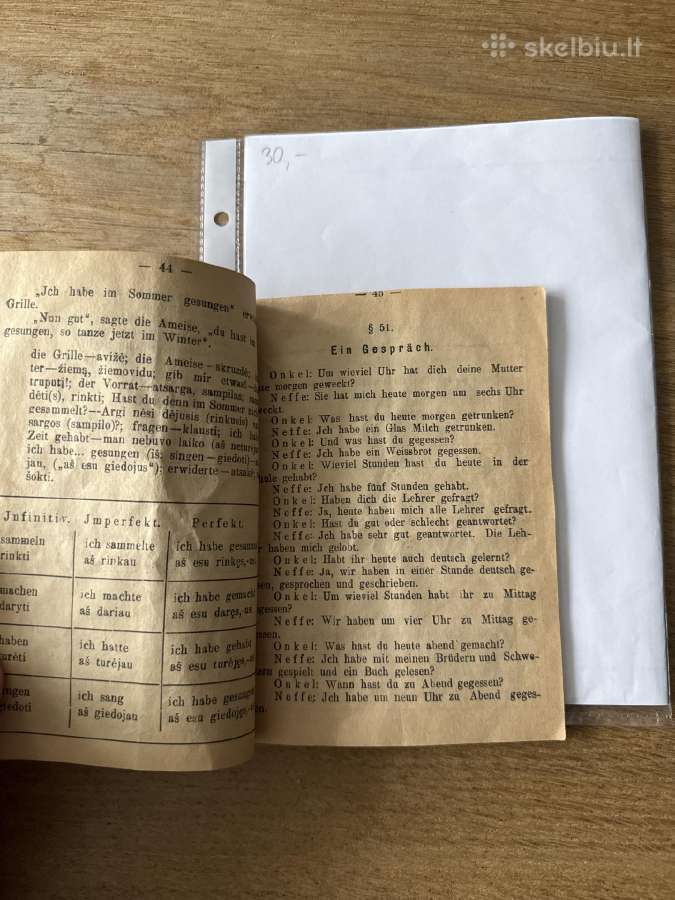 skelbiu.lt
30,-
— 44 —
„Jch habe im Sommer gesungen“
Grille.
„Nun gut“, sagte die Ameise, „du hast im
gesungen, so tanze jetzt im Winter“.
die Grille—avižė; die Ameise—skruzdė;
ter—žiemą, žiemovidu; gib mir etwas—
truputį!; der Vorrat—atsarga, sampilas;
dėti(s), rinkti; Hast du denn im Sommer
gesammelt?—Argi nėsi dėjusis (rinkusis)
sargos (sampilo)?; fragen—klausti; ich
Zeit gehabt—man nebuvo laiko (aš
ich habe... gesungen (iš: singen—giedoti)—
jau, („aš esu giedojus“); erwiderte—
šokti.
Jnfinitiv. Jmperfekt. Perfekt.
sammeln ich sammelte ich habe
rinkti aš rinkau aš esu rinkęs,
machen ich machte ich habe
daryti aš dariau aš esu daręs,
haben ich hatte ich habe gehabt
turėti aš turėjau aš esu turėjęs,
ich sang ich habe
giedoti aš giedojau aš esu giedojęs,
— 45 —
§ 51.
Ein Gespräch.
Onkel: Um wieviel Uhr hat dich deine Mutter
morgen geweckt?
Neffe: Sie hat mich heute morgen um sechs Uhr
Onkel: Was hast du heute morgen getrunken?
Neffe: Jch habe ein Glas Milch getrunken.
Onkel: Und was hast du gegessen?
Neffe: Jch habe ein Weissbrot gegessen.
Onkel: Wieviel Stunden hast du heute in der
gehabt?
Neffe: Jch habe fünf Stunden gehabt.
Onkel: Haben dich die Lehrer gefragt?
Neffe: Ja, heute haben mich alle Lehrer gefragt.
Onkel: Hast du gut oder schlecht geantwortet?
Neffe: Jch habe sehr gut geantwortet. Die Leh-
haben mich gelobt.
Onkel: Habt ihr heute auch deutsch gelernt?
Neffe: Ja, wir haben in einer Stunde deutsch ge-
gesprochen und geschrieben.
Onkel: Um wieviel Stunden habt ihr zu Mittag
Neffe: Wir haben um vier Uhr zu Mittag ge-
Onkel: Was hast du heute abend gemacht?
Neffe: Jch habe mit meinen Brüdern und Schwe-
gespielt und ein Buch gelesen?
Onkel: Wann hast du zu Abend gegessen?
Neffe: Jch habe um neun Uhr zu Abend geges-